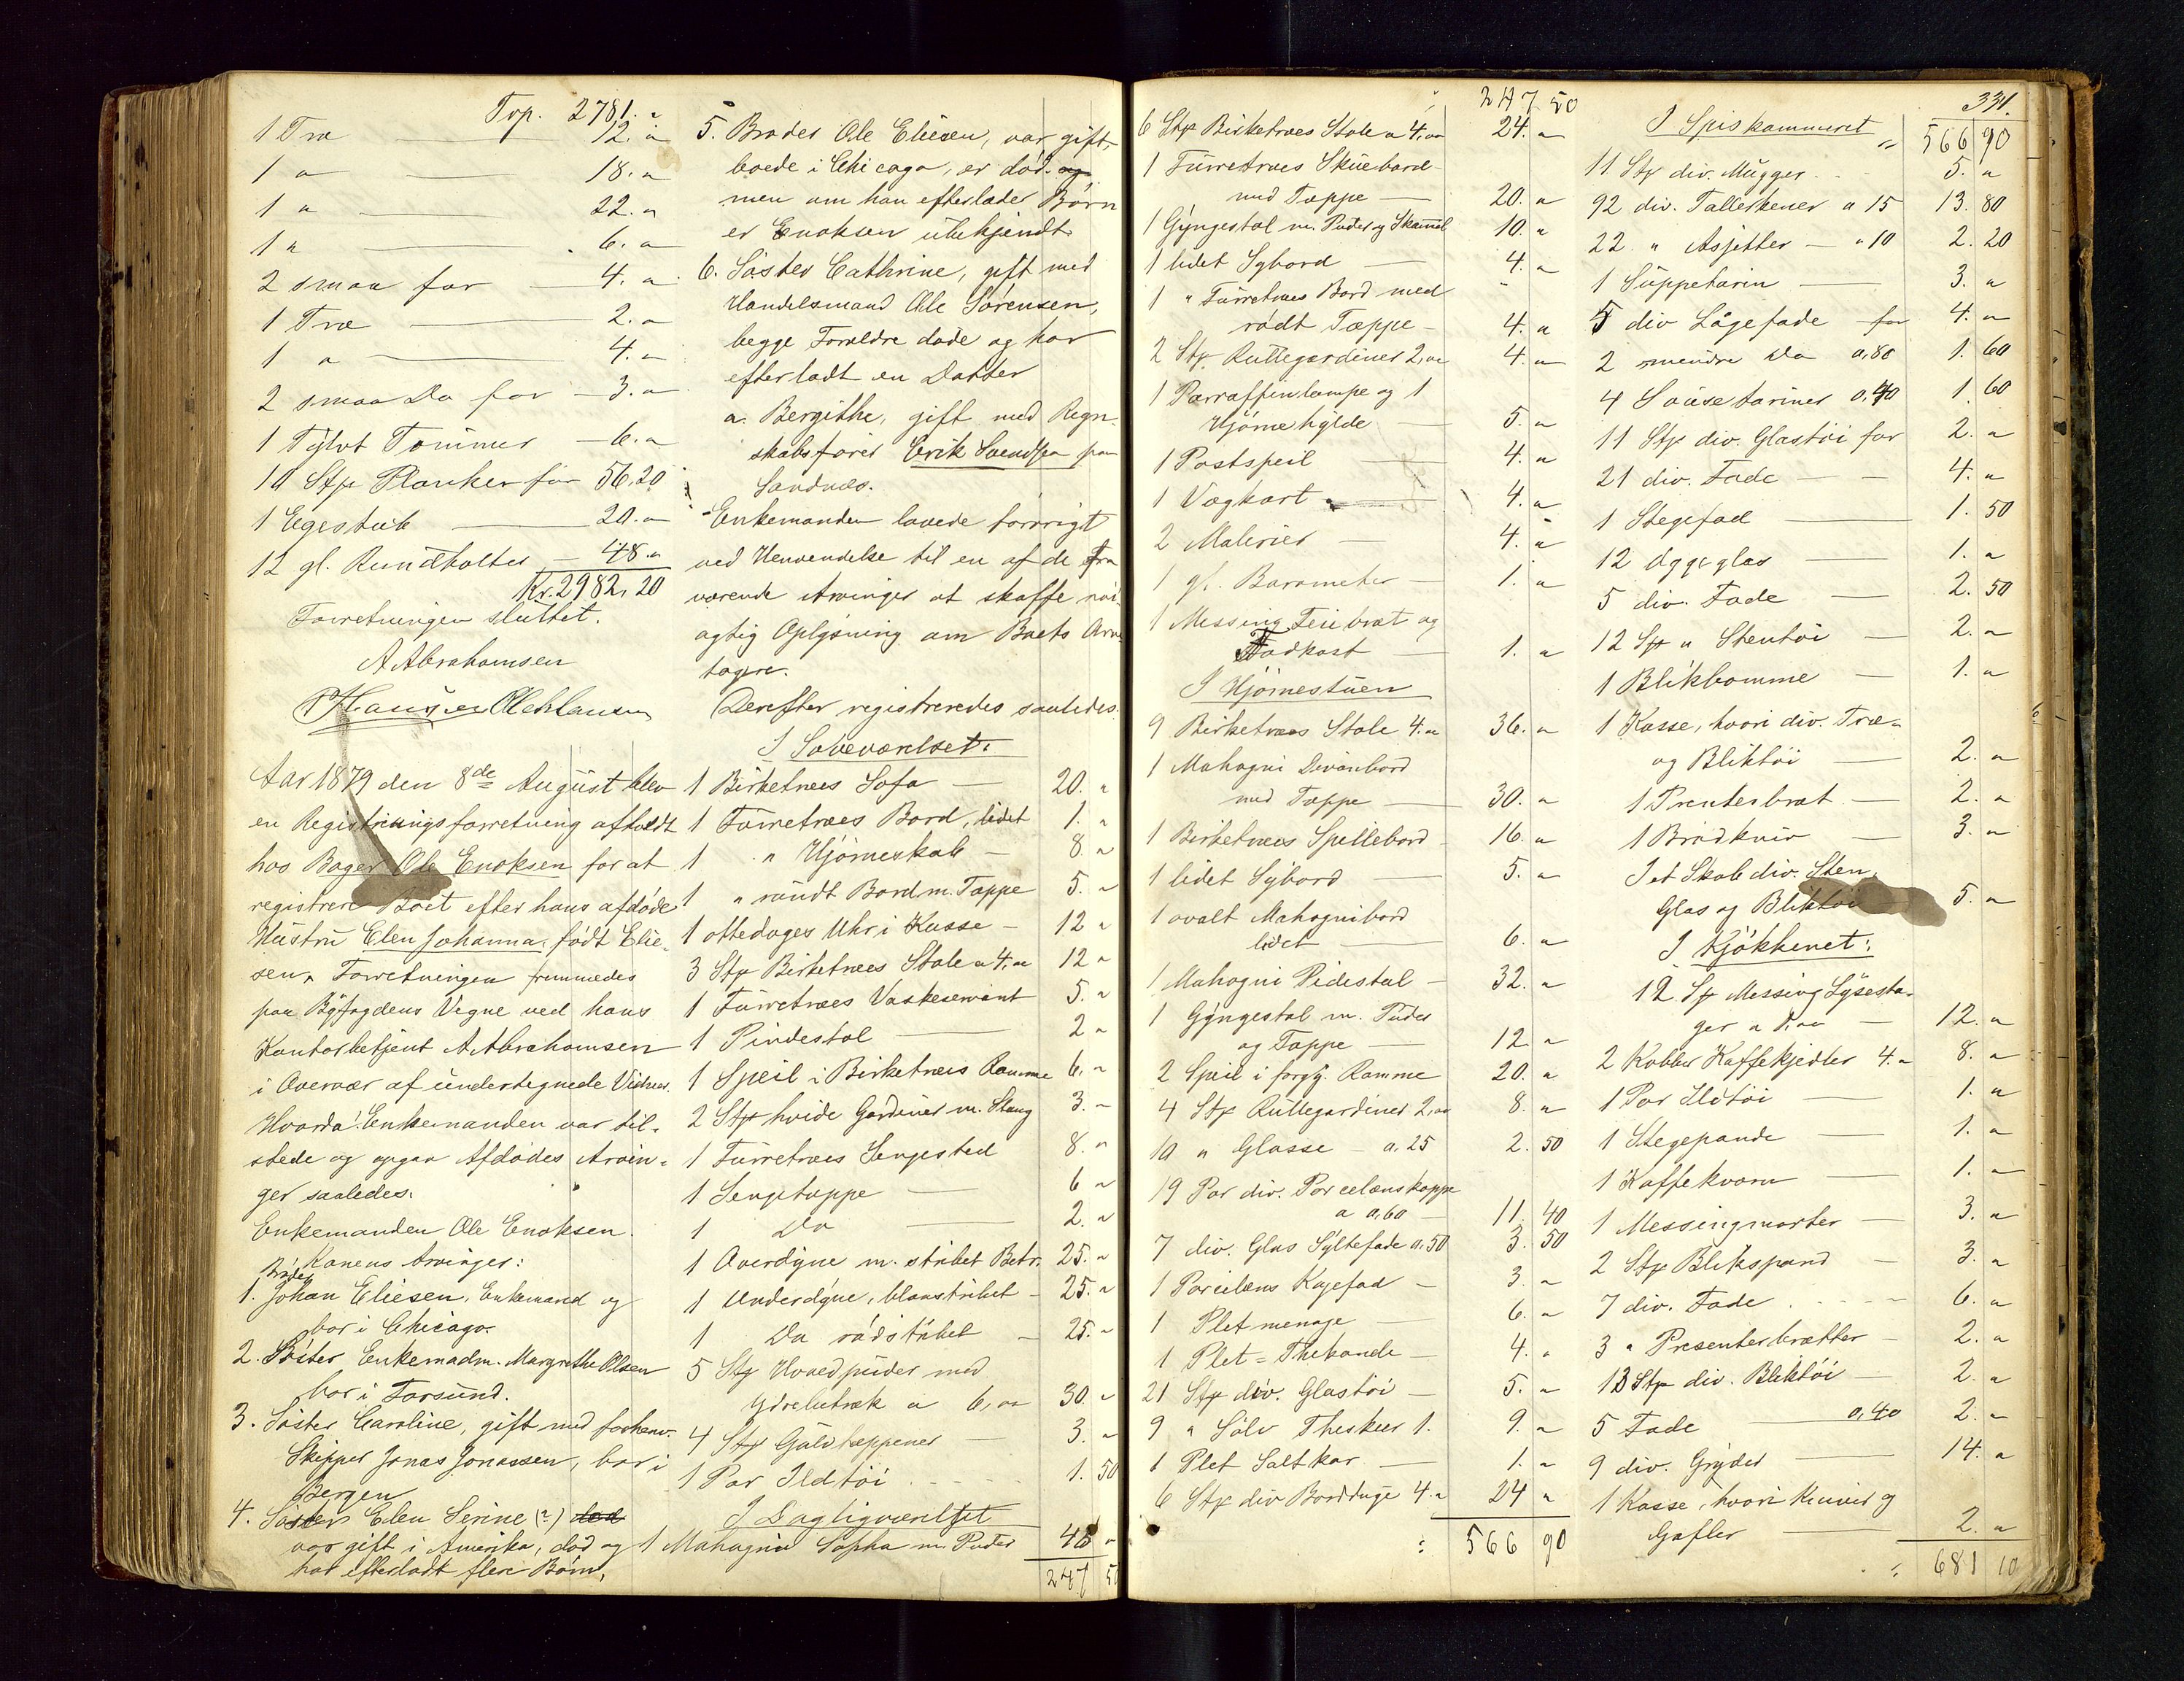 Trp. 2781. "
1 Træ — 12. "
1 " — 18. "
1 " — 22. "
1 " — 6. "
2 smaa for — 4. "
1 Træ — 2. "
1 " — 4. "
2 smaa Do for — 3. "
1 Tylvt Tømmer — 6. "
10 Stp Planker for 56.20
1 Egestub — 20. "
12 gl. Rundholter — 48. "
Kr. 2982,20
Forretningen sluttet.
A Abrahamsen
Aar 1879 den 8de August blev
en Registreringsforretning afholdt
hos Bager Ole Enoksen for at
registrere Boet efter hans afdøde
Hustru Elen Johanna, født Elie-
sen. Forretningen fremmedes
paa Byfogdens Vegne ved hans
Kontorbetjent A Abrahamsen
i Overvær af undertegnede Vidner.
Hvorda! Enkemanden var til-
stede og opgav Afdødes Arvin-
ger saaledes:
Enkemanden Ole Enoksen.
Konens Arvinger:
1. Broder Johan Eliesen, Enkemand og
bor i Chicago.
2. Søster Enkemadm. Margrethe Olsen
bor i Farsund.
3. Søster Caroline, gift med forhenv.
Skipper Jonas Jonassen, bor i
Bergen
4. Søster Elen Serine (?) død
var gift i Amerika, død og
har efterladt flere Børn,
5. Broder Ole Eliesen, var gift,
boede i Chicago, er død. og
men om han efterlader Børn
er Enoksen ubekjendt.
6. Søster Cathrine, gift med
Handelsmand Ole Sørensen,
begge Forældre døde og har
efterladt en Datter
a. Bergithe, gift med Regn-
skabsfører Erik Svendsen paa
Sandnæs.
Enkemanden lovede forøvrigt
ved Henvendelse til en af de fra
værende Arvinger at skaffe nøi-
agtig Oplysning om Boets Arve
tagere.
Derefter registreredes saaledes:
I Soveværelset:
1 Birketræes Sofa — 20. "
1 Furretræes Bord, lidet 1. "
1 " Hjørneskab — 8. "
1 " rundt Bord m. Tæppe 5. "
1 ottedages Uhr i Kasse — 12 "
3 Stp Birketræes Stole a 4,00 12 "
1 Furretræes Vaskeservant 5. "
1 Pindestol — 2 "
1 Speil i Birketræes Ramme 6. "
2 Stp hvide Gardiner m. Stang 3. "
1 Furretræes Sengested 8. "
1 Sengetæppe — 6 "
1 Do — 2. "
1 Overdyne m. stribet Betr. 25. "
1 Underdyne, blaastribet — 25. "
1 Do rødstribet — 25. "
5 Stp Hovedpuder med
Ydrebetræk a 6,00 30 "
4 Stp Gulvtæppener — 3. "
1 Par Ildtøi — 1. 50
I Dagligværelset
1 Mahogni Sopha m. Puder 45 "
247 50
247 50
6 Stp Birketræes Stole a 4,00 24. "
1 Furretræes Skuebord
med Tæppe — 20. "
1 Gyngestol m. Puder og Skammel 10. "
1 lidet Sybord — 4. "
1 " Furretræes Bord med
rødt Tæppe — 4. "
2 Stp. Rullegardiner 2,00 4. "
1 Parraffinlampe og 1
Hjørnehylde — 5. "
1 Postspeil — 4. "
1 Vægkart — 4. "
2 Malerier — 4. "
1 gl. Barometer — 1. "
1 Messing Feiebræt og
Fadkost — 1. "
I Hjørnestuen
9 Birketræes Stole 4. " 36. "
1 Mahogni Divanbord
med Tæppe — 30. "
1 Birketræes Spillebord — 16. "
1 lidet Sybord — 5. "
1 ovalt Mahognibord
lidet — 6. "
1 Mahogni Pidestal — 32. "
1 Gyngestol m. Puder
og Tæppe — 12 "
2 Speil i forgy. Ramme 20. "
4 Stp Rullegardiner 2,00 8. "
10 " Glasse — a. 25 2. 50
19 Par div. Porcelænskoppe
a 0,60 — 11. 40
7 div. Glas Syltefade 0,50 3. 50
1 Porcelæns Kagefad — 3. "
1 Plet menage — 6. "
1 Plet = Thekande — 4. "
21 Stp div. Glastøi — 5. "
9 " Sølv Theskeer 1. 9. "
1 Plet Saltkar — 1. "
6 Stp div Bordduge 4. " 24 "
: 566 90
331.
I Spiskammeret
" 566 90
11 Stp div. Mugger 5. "
92 div. Tallerkener a 15 13. 80
22 " Asjetter — " 10 2. 20
1 Suppetarin — 3. "
5 div Lågefade for 4. "
2 mindre Do 0,80 1. 60
4 Sausetariner 0,40 1. 60
11 Stp div. Glastøi for 2. "
21 div. Fade — 4. "
1 Stegefad — 1. 50
12 Ægge glas — 1. "
5 div. Fade — 2. 50
12 Stp " Stentøi — 2. "
1 Blikbomme — 1. "
1 Kasse, hvori div. Træ-
og Bliktøi — 2. "
1 Prenterbræt — 2. "
1 Brødkniv — 3. "
I et Skab div. Sten,
Glas og Bliktøi 5. "
I Kjøkkenet:
12 Stp Messing Lysesta-
ger a 1,00 — 12. "
2 Kobber Kaffekjedler 4. " 8. "
1 Par Ildtøi — 1. "
1 Stegepande — 1. "
1 Kaffekværn — 1. "
1 Messingmorter — 3. "
2 Stp Blikspand — 3. "
7 div. Fade — 6. "
3 " Presenterbrætter — 2. "
13 Stp div. Bliktøi — 2. "
5 Fade 0,40 2. "
9 div. Gryder — 14. "
1 Kasse, hvori Kniver og
Gafler — 2. "
: 681 10